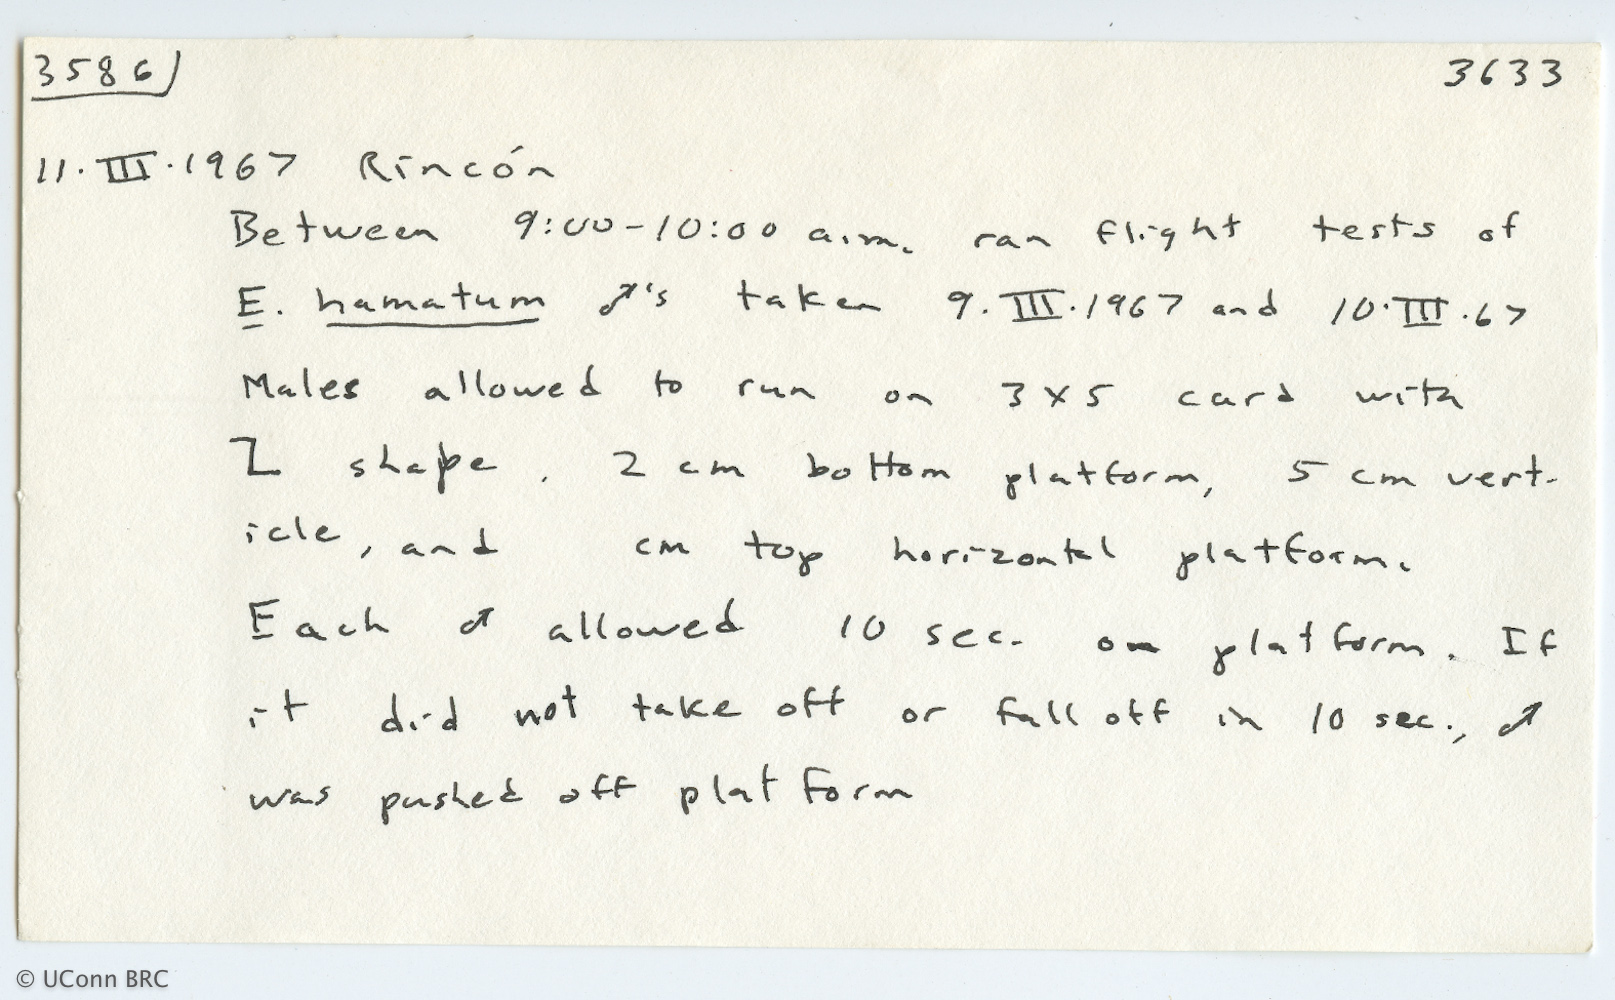 3586 3633
11.III.1967 Rincón
Between 9:00-10:00 a.m. ran flight tests of
E. hamatum ♂'s taken 9.III.1967 and 10.III.67
Males allowed to run on 3x5 card with
Z shape. 2 cm bottom platform, 5 cm vert-
icle, and cm top horizontal platform.
Each ♂ allowed 10 sec. on platform. If
it did not take off or fall off in 10 sec., ♂
was pushed off platform
© UConn BRC